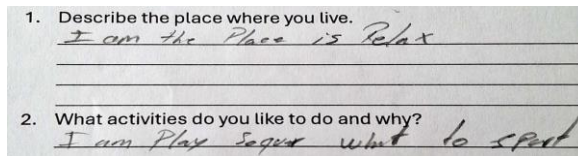 1. Describe the place where you live.
I am the Place is Relax
2. What activities do you like to do and why?
I am Play Soquer what to sport